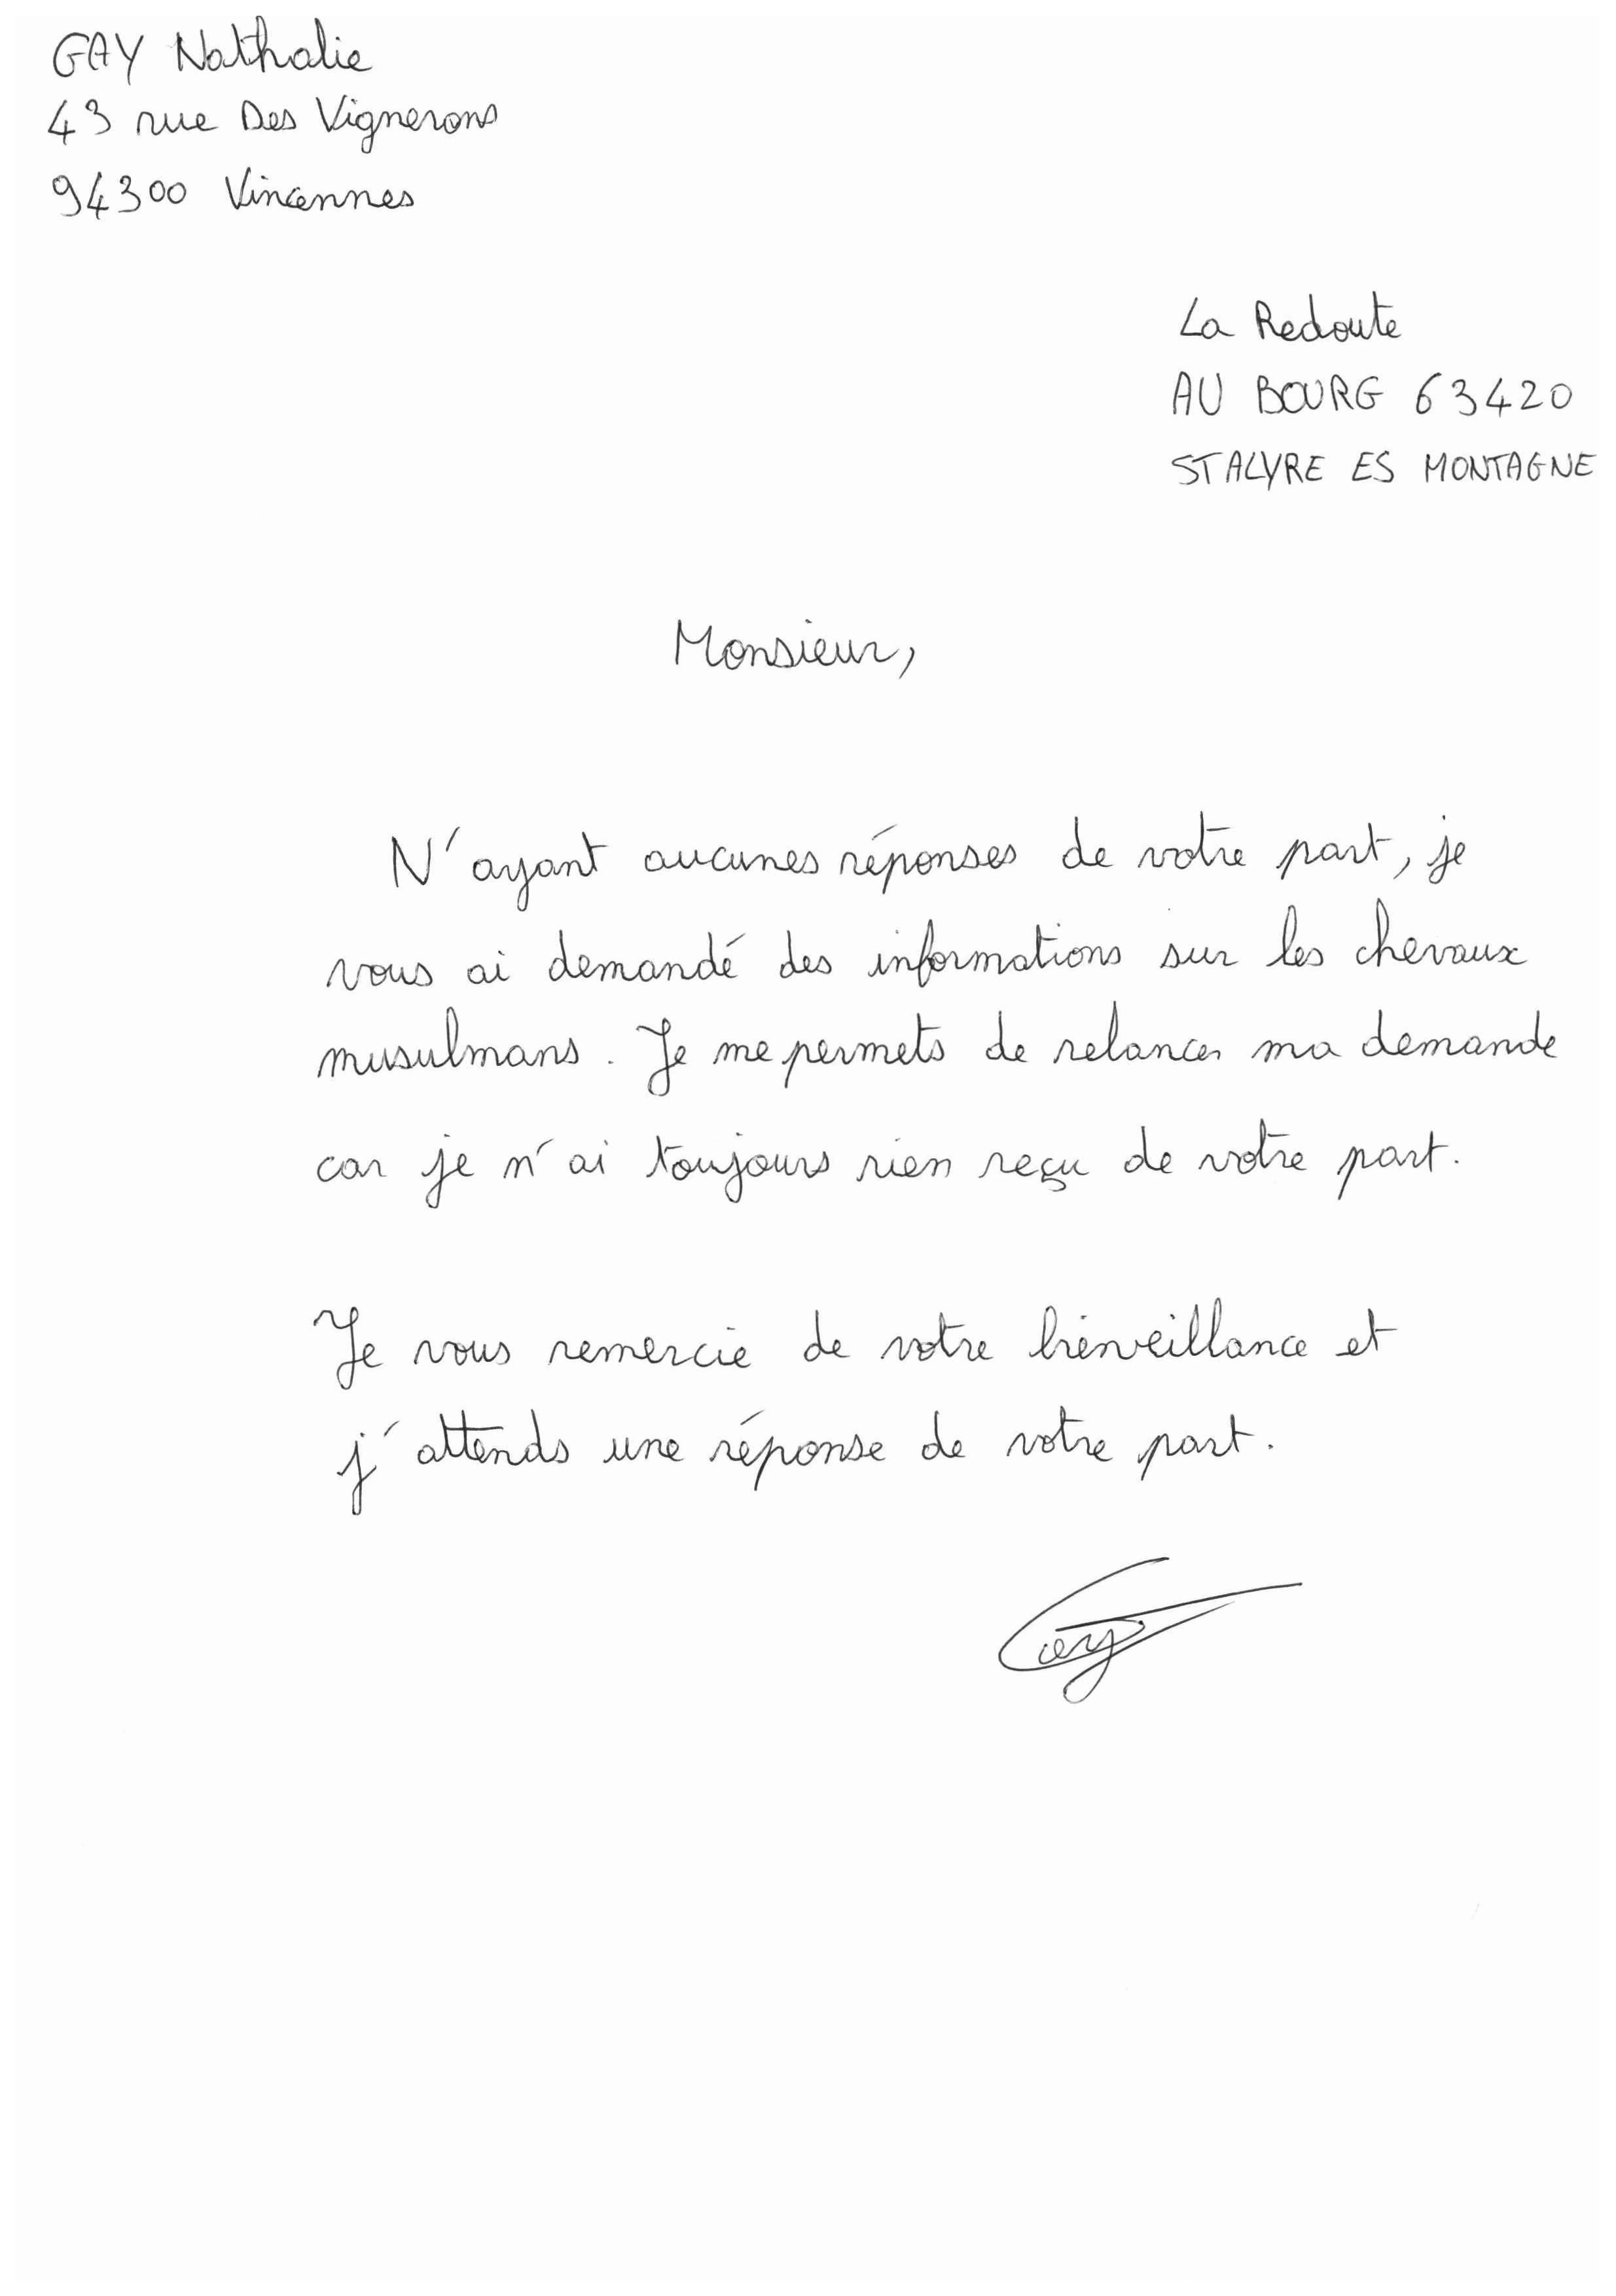 GAY Nathalie
43 rue Des Vignerons
94300 Vincennes
La Redoute
AU BOURG 63420
ST ALYRE ES MONTAGNE
Monsieur,
N'ayant aucunes réponses de votre part, je
vous ai demandé des informations sur les chevaux
musulmans. Je me permets de relancer ma demande
car je n'ai toujours rien reçu de votre part.
Je vous remercie de votre bienveillance et
j'attends une réponse de votre part.
Gay